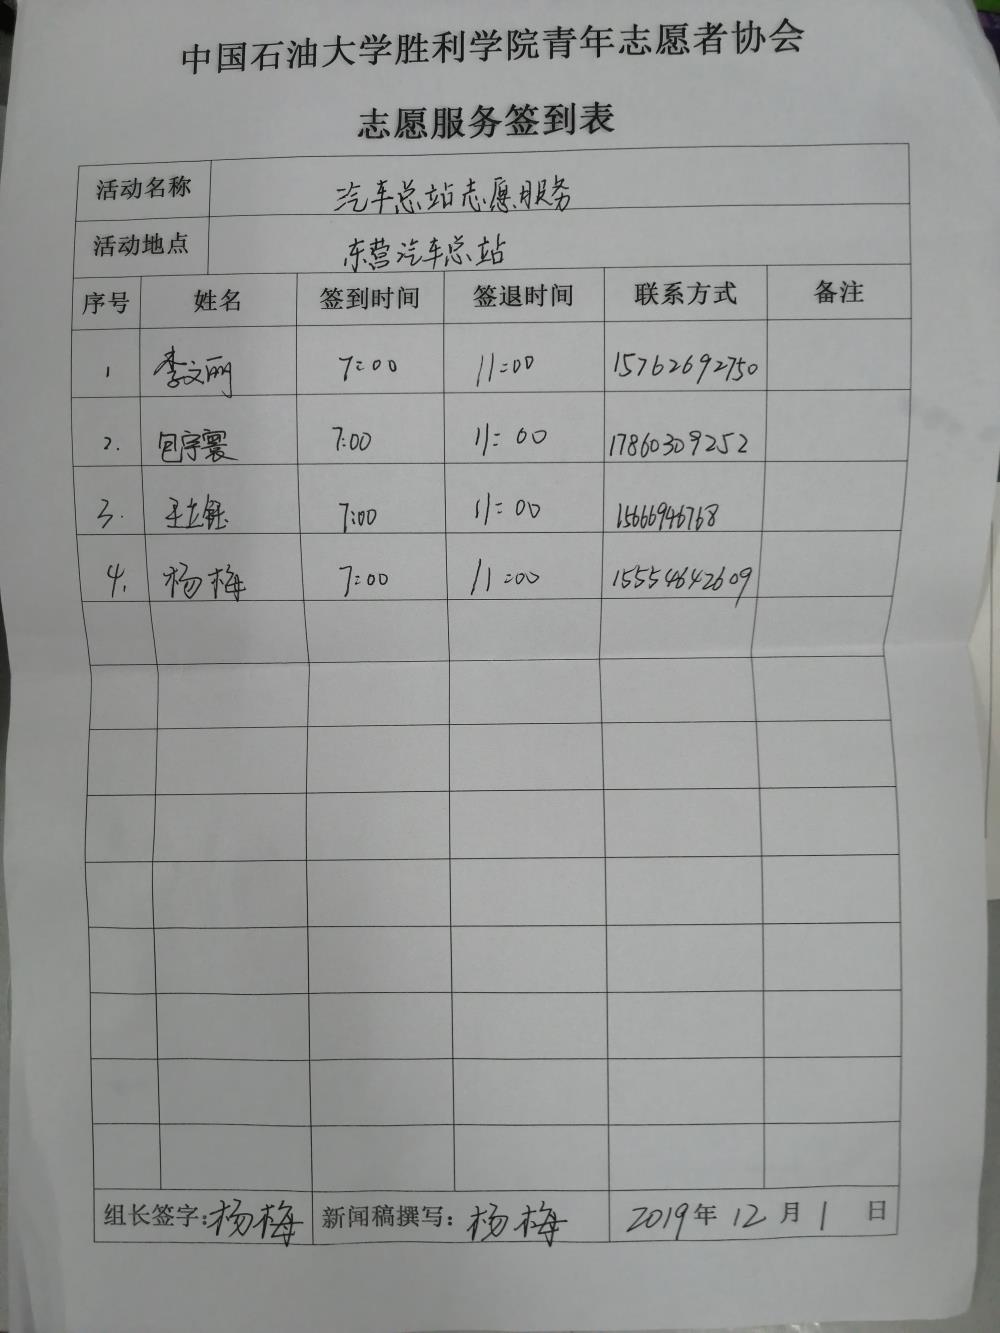 中国石油大学胜利学院青年志愿者协会
志愿服务签到表
活动名称 汽车总站志愿服务
活动地点 东营汽车总站
序号 姓名 签到时间 签退时间 联系方式 备注
1 李文丽 7:00 11:00 15762692750
2. 包宇寰 7:00 11:00 17860309252
3. 王立钰 7:00 11:00 15666946768
4. 杨梅 7:00 11:00 15554642609
组长签字:杨梅 新闻稿撰写:杨梅 2019年12月1日